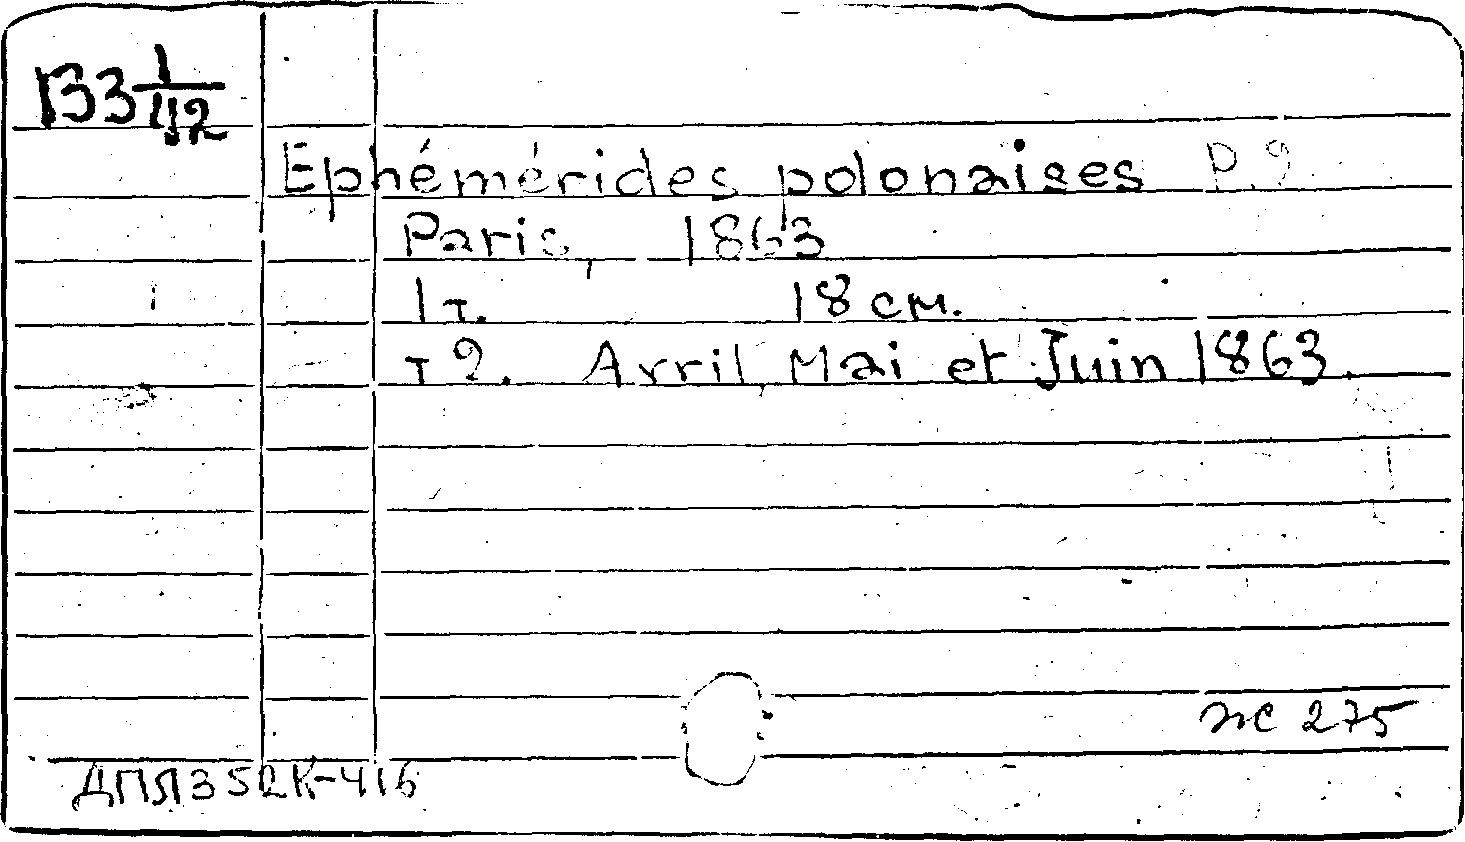 B3 1/112
Ephémérides polonaises P. 2
Paris, 1863
1 т. 18 см.
т 2. Avril, Mai et Juin 1863.
же 275
ДПЛ352К-416